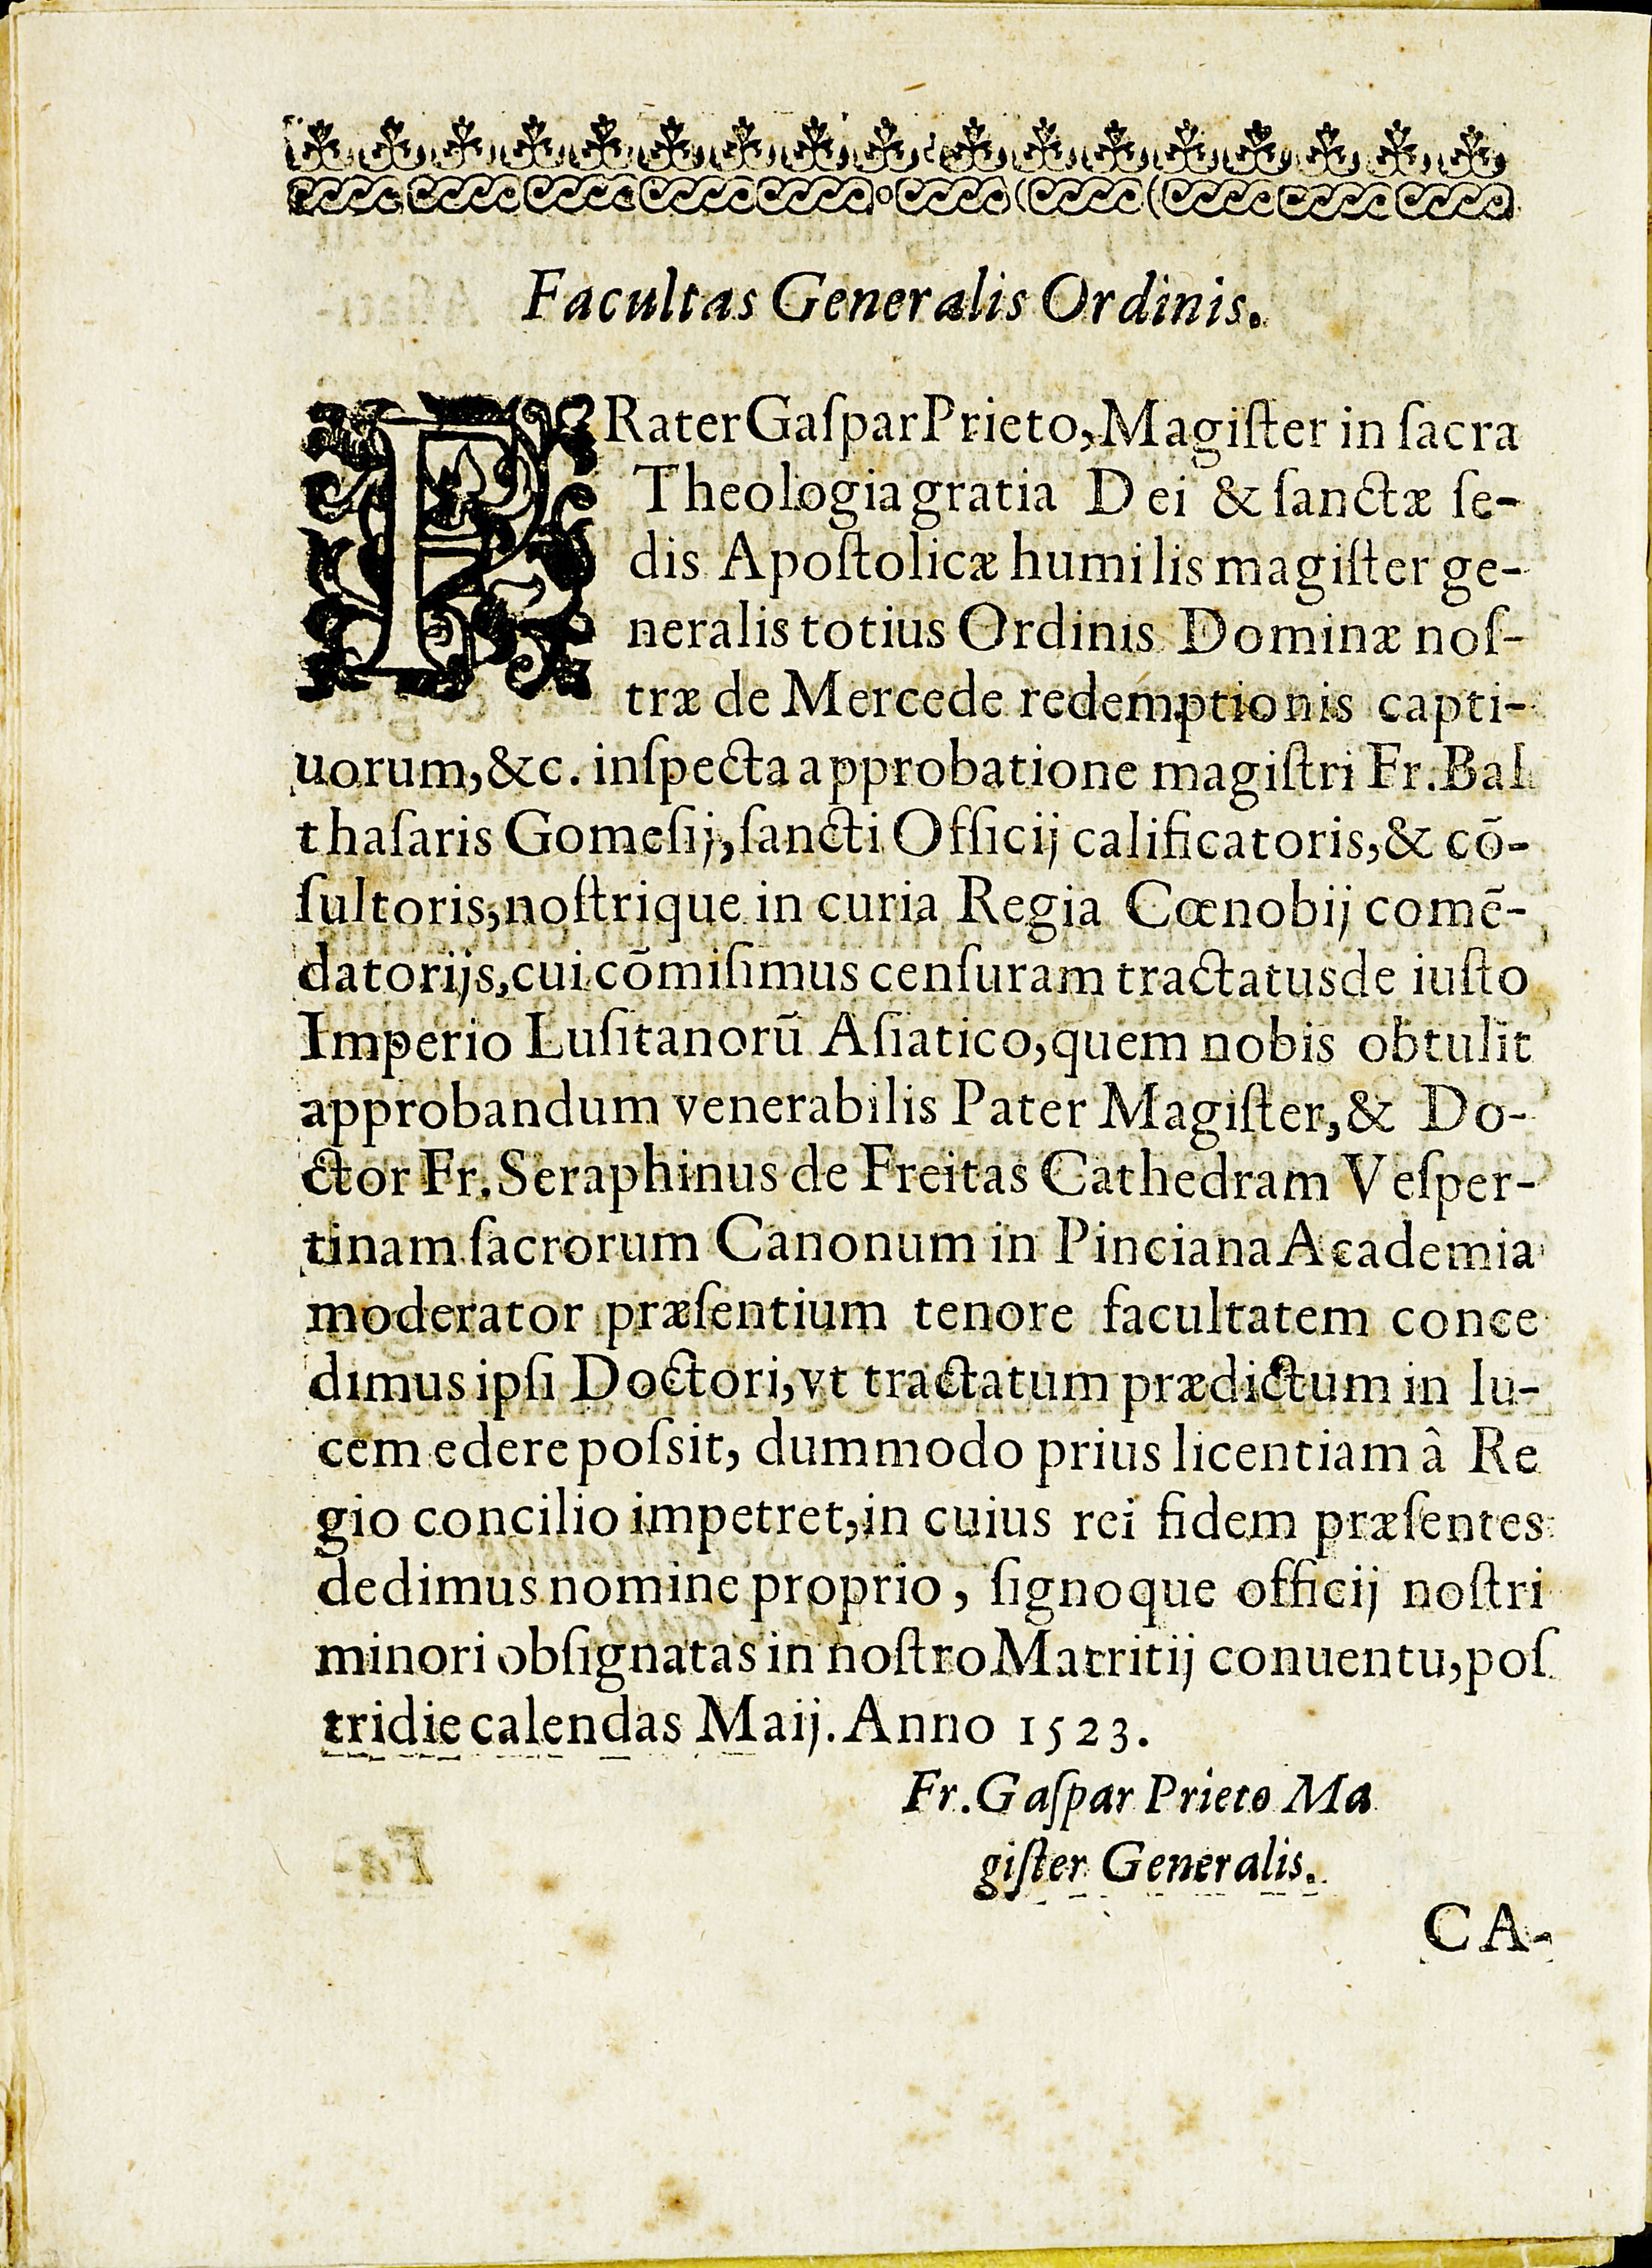 Facultas Generalis Ordinis.
FRater Gaſpar Prieto, Magiſter in ſacra
Theologia gratia Dei & ſanctæ ſe-
dis Apoſtolicæ humilis magiſter ge-
neralis totius Ordinis Dominæ noſ-
træ de Mercede redemptionis capti-
uorum, &c. inſpecta approbatione magiſtri Fr. Bal
thaſaris Gomeſij, ſancti Officij calificatoris, & cõ-
ſultoris, noſtrique in curia Regia Cœnobij comẽ-
datorijs, cui cõmiſimus cenſuram tractatus de iuſto
Imperio Luſitanorũ Aſiatico, quem nobis obtulit
approbandum venerabilis Pater Magiſter, & Do-
ctor Fr. Seraphinus de Freitas Cathedram Veſper-
tinam ſacrorum Canonum in Pinciana Academia
moderator præſentium tenore facultatem conce
dimus ipſi Doctori, vt tractatum prædictum in lu-
cem edere poſsit, dummodo prius licentiam â Re
gio concilio impetret, in cuius rei fidem præſentes
dedimus nomine proprio, ſignoque officij noſtri
minori obſignatas in noſtro Matritij conuentu, poſ
tridie calendas Maij. Anno 1523.
Fr. Gaſpar Prieto Ma
giſter Generalis.
CA-